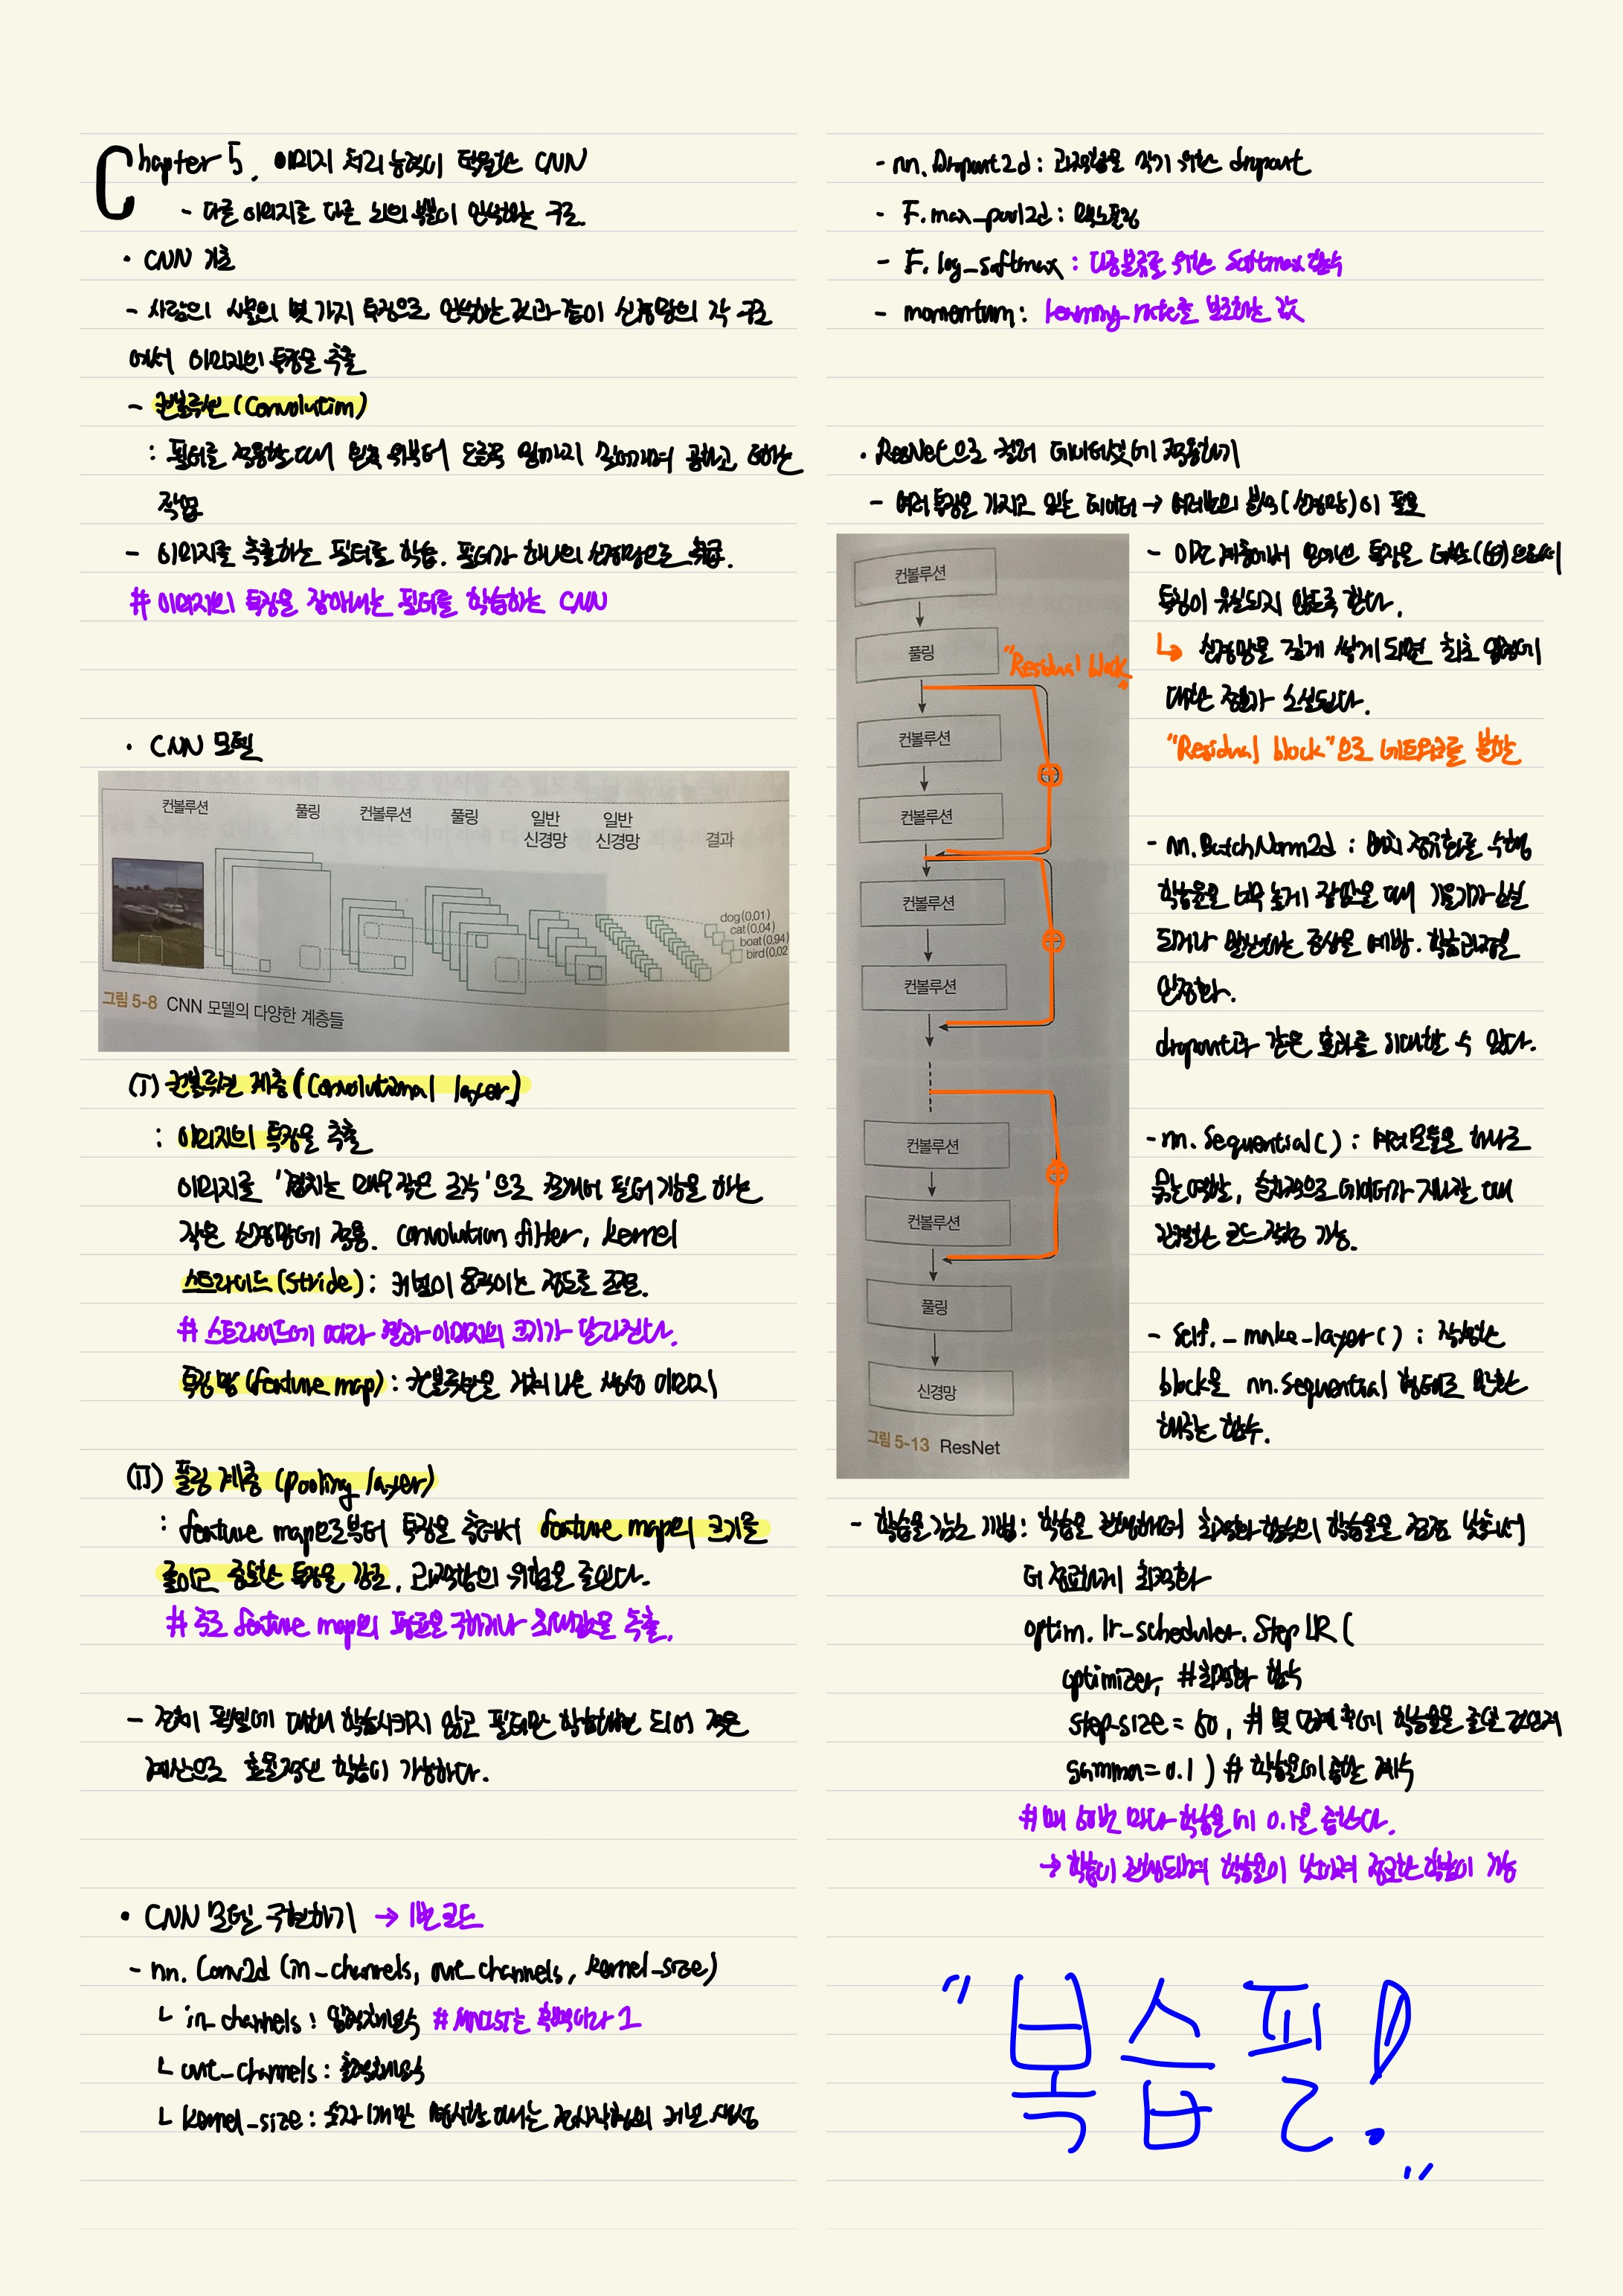 Chapter 5. 이미지 처리 능력이 탁월한 CNN
- 다른 이미지를 다른 뇌의 부분이 인식하는 구조.
• CNN 기초
- 사람의 사물의 몇 가지 특징으로 인식하는 것과 같이 신경망의 각 구조
에서 이미지의 특징을 추출
- 컨볼루션 (Convolution)
: 필터를 적용할 때 왼쪽 위부터 오른쪽 밑까지 밀어가며 곱하고, 더하는
작업
- 이미지를 추출하는 필터를 학습. 필터가 하나의 신경망으로 취급.
# 이미지의 특징을 잡아내는 필터를 학습하는 CNN
• CNN 모델
컨볼루션 풀링 컨볼루션 풀링 일반 신경망 일반 신경망 결과
dog (0.01)
cat (0.04)
boat (0.94)
bird (0.02
그림 5-8 CNN 모델의 다양한 계층들
(I) 컨볼루션 계층 (Convolutional layer)
: 이미지의 특징을 추출
이미지를 '겹치는 매우 작은 조각'으로 쪼개어 필터 기능을 하는
작은 신경망에 적용. convolution filter, kernel
스트라이드 (stride) : 커널이 움직이는 정도를 조절.
# 스트라이드에 따라 결과 이미지의 크기가 달라진다.
특징 맵 (feature map) : 컨볼루션을 거쳐 나온 생성 이미지
(II) 풀링 계층 (pooling layer)
: feature map으로부터 특징을 추려서 feature map의 크기를
줄이고 중요한 특징을 강조, 과적합의 위험을 줄인다.
# 주로 feature map의 평균을 구하거나 최대값을 추출.
- 전체 픽셀에 대해 학습시키지 않고 필터만 학습하면 되어 적은
계산으로 효율적인 학습이 가능하다.
• CNN 모델 구현하기 → 1번 코드
- nn. Conv2d (in_channels, out_channels, kernel_size)
└ in_channels : 입력채널수 # MNIST는 흑백이라 1
└ out_channels : 출력채널수
└ kernel_size : 숫자 1개만 명시할 때는 정사각형의 커널 생성
- nn. Dropout2d : 과적합을 막기 위한 dropout
- F. max_pool2d : 맥스풀링
- F. log_softmax : 다중분류를 위한 Softmax 함수
- momentum : learning rate를 보조하는 값
• ResNet으로 컬러 데이터셋에 적용하기
- 여러 특징을 가지고 있는 데이터 → 여러번의 분석(신경망)이 필요
컨볼루션
풀링
"Residual block"
컨볼루션
컨볼루션
컨볼루션
컨볼루션
컨볼루션
컨볼루션
풀링
신경망
그림 5-13 ResNet
- 이전 계층에서 얻어낸 특징을 덧셈(⊕)으로써
특징이 유실되지 않도록 한다.
↳ 신경망을 깊게 쌓게 되면 최초 입력에
대한 정보가 소실된다.
"Residual block"으로 네트워크를 분할
- nn. BatchNorm2d : 배치 정규화를 수행
학습률을 너무 높게 잡았을 때 기울기가 소실
되거나 발산하는 증상을 예방. 학습과정을
안정화.
dropout과 같은 효과를 기대할 수 있다.
- nn. Sequential( ) : 여러 모듈을 하나로
묶는 역할, 순차적으로 데이터가 지나갈 때
간결한 코드 작성 가능.
- self. _make_layer( ) : 작성한
block을 nn.Sequential 형태로 변환
해주는 함수.
- 학습률 감소 기법 : 학습을 진행하며 최적화 함수의 학습률을 점점 낮춰서
더 정교하게 최적화
optim. lr_scheduler. StepLR (
optimizer, # 최적화 함수
step_size = 60, # 몇 단계 후에 학습률을 줄일 것인지
gamma = 0.1 ) # 학습률에 곱할 계수
# 매 60번 마다 학습률에 0.1을 곱한다.
→ 학습이 진행되며 학습률이 낮아져 정교한 학습이 가능
"복습 필!"